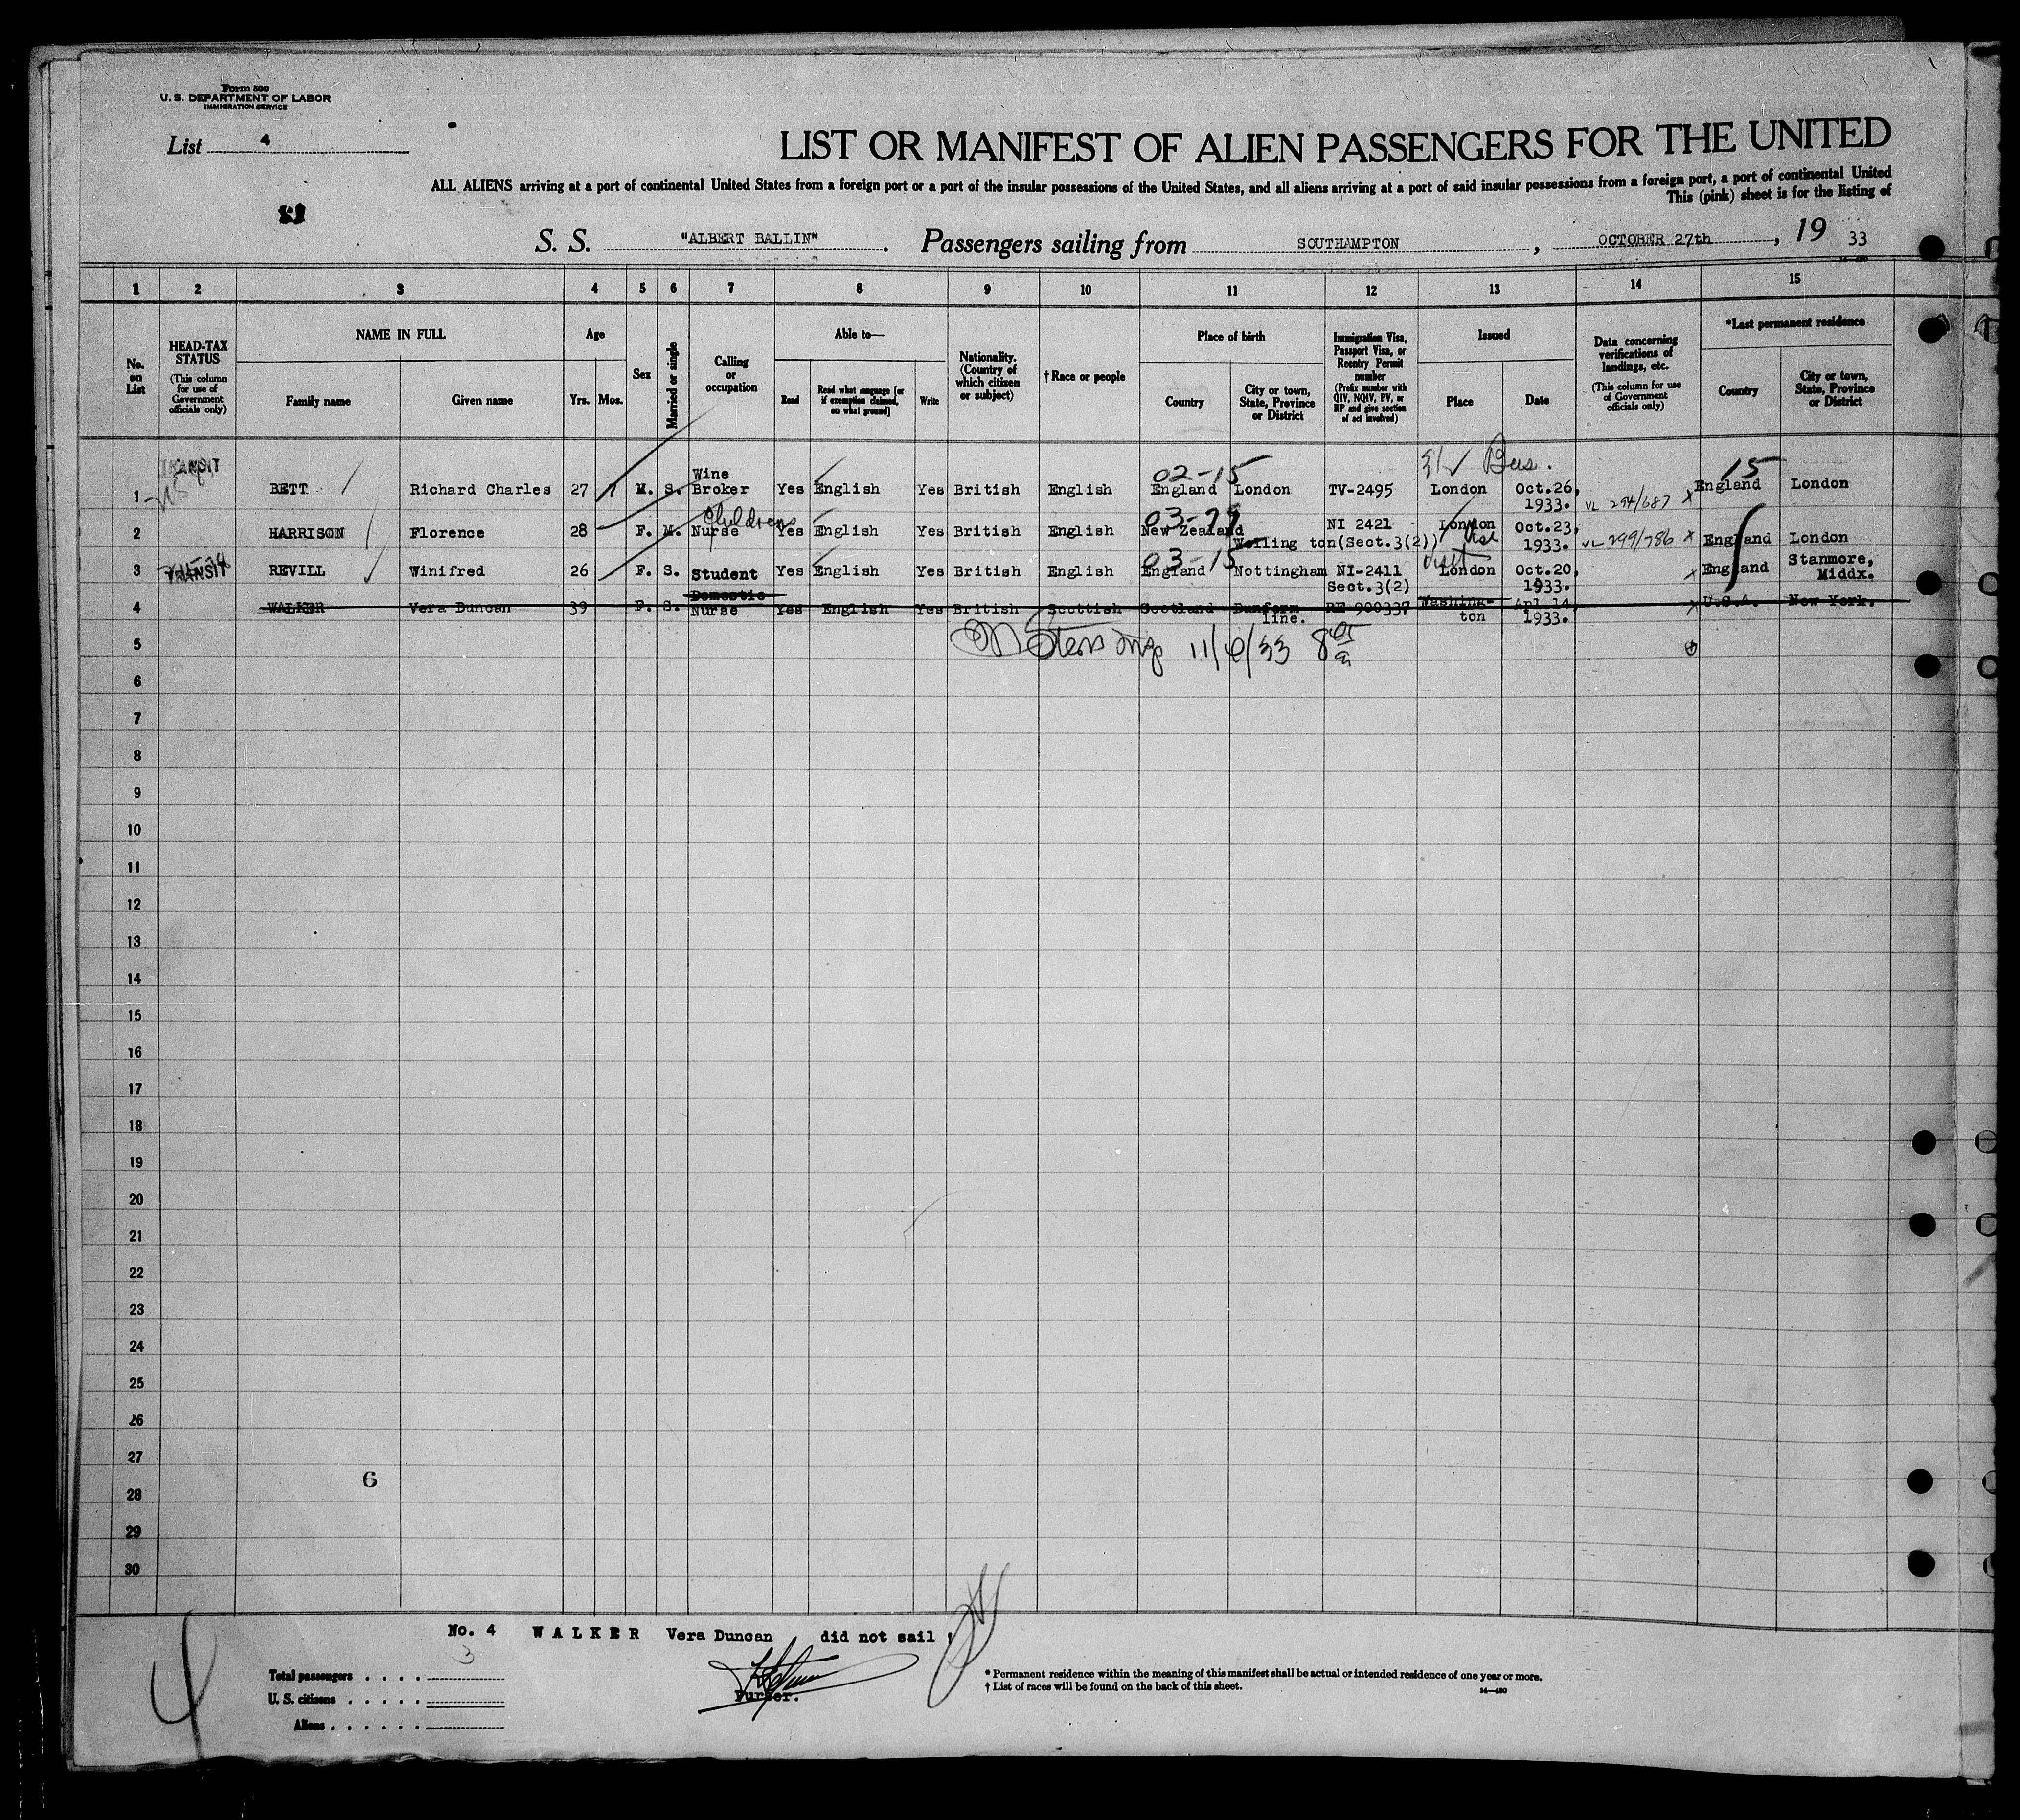 Form 500
U. S. DEPARTMENT OF LABOR
IMMIGRATION SERVICE
List 4
LIST OR MANIFEST OF ALIEN PASSENGERS FOR THE UNITED
ALL ALIENS arriving at a port of continental United States from a foreign port or a port of the insular possessions of the United States, and all aliens arriving at a port of said insular possessions from a foreign port, a port of continental United
This (pink) sheet is for the listing of
S. S. "ALBERT BALLIN". Passengers sailing from SOUTHAMPTON, OCTOBER 27th, 19 33
1 2 3 4 5 6 7 8 9 10 11 12 13 14 15
No. on List
HEAD-TAX STATUS
(This column for use of Government officials only)
NAME IN FULL
Family name
Given name
Age
Yrs. Mos.
Sex
Married or single
Calling or occupation
Able to—
Read
Read what language [or if exemption claimed, on what ground]
Write
Nationality. (Country of which citizen or subject)
† Race or people
Place of birth
Country
City or town, State, Province or District
Immigration Visa, Passport Visa, or Reentry Permit number
(Prefix number with QIV, NQIV, PV, or RP and give section of act involved)
Issued
Place
Date
Data concerning verifications of landings, etc.
(This column for use of Government officials only)
*Last permanent residence
Country
City or town, State, Province or District
TRANSIT
02-15
Bus.
15
1 BETT Richard Charles 27 M. S. Wine Broker Yes English Yes British English England London TV-2495 London Oct.26, 1933. VL 294/687 x England London
Childrens
03-79
2 HARRISON Florence 28 F. M. Nurse Yes English Yes British English New Zealand Welling ton NI 2421 (Sect.3(2)) London Oct.23, 1933. VL 299/786 x England London
03-15
visit
3 TRANSIT REVILL Winifred 26 F. S. Student Yes English Yes British English England Nottingham NI-2411 Sect.3(2) London Oct.20, 1933. x England Stanmore, Middx.
4 WALKER Vera Duncan 39 F. S. Domestic Nurse Yes English Yes British Scottish Scotland Dunfermline. RE 900337 Washington Apl.14, 1933. x U.S.A. New York.
5 11/6/33 8
6
7
8
9
10
11
12
13
14
15
16
17
18
19
20
21
22
23
24
25
26
27
6
28
29
30
No. 4 WALKER Vera Duncan did not sail
3
Total passengers
U. S. citizens
Aliens
Purser.
* Permanent residence within the meaning of this manifest shall be actual or intended residence of one year or more.
† List of races will be found on the back of this sheet.
14—430
4